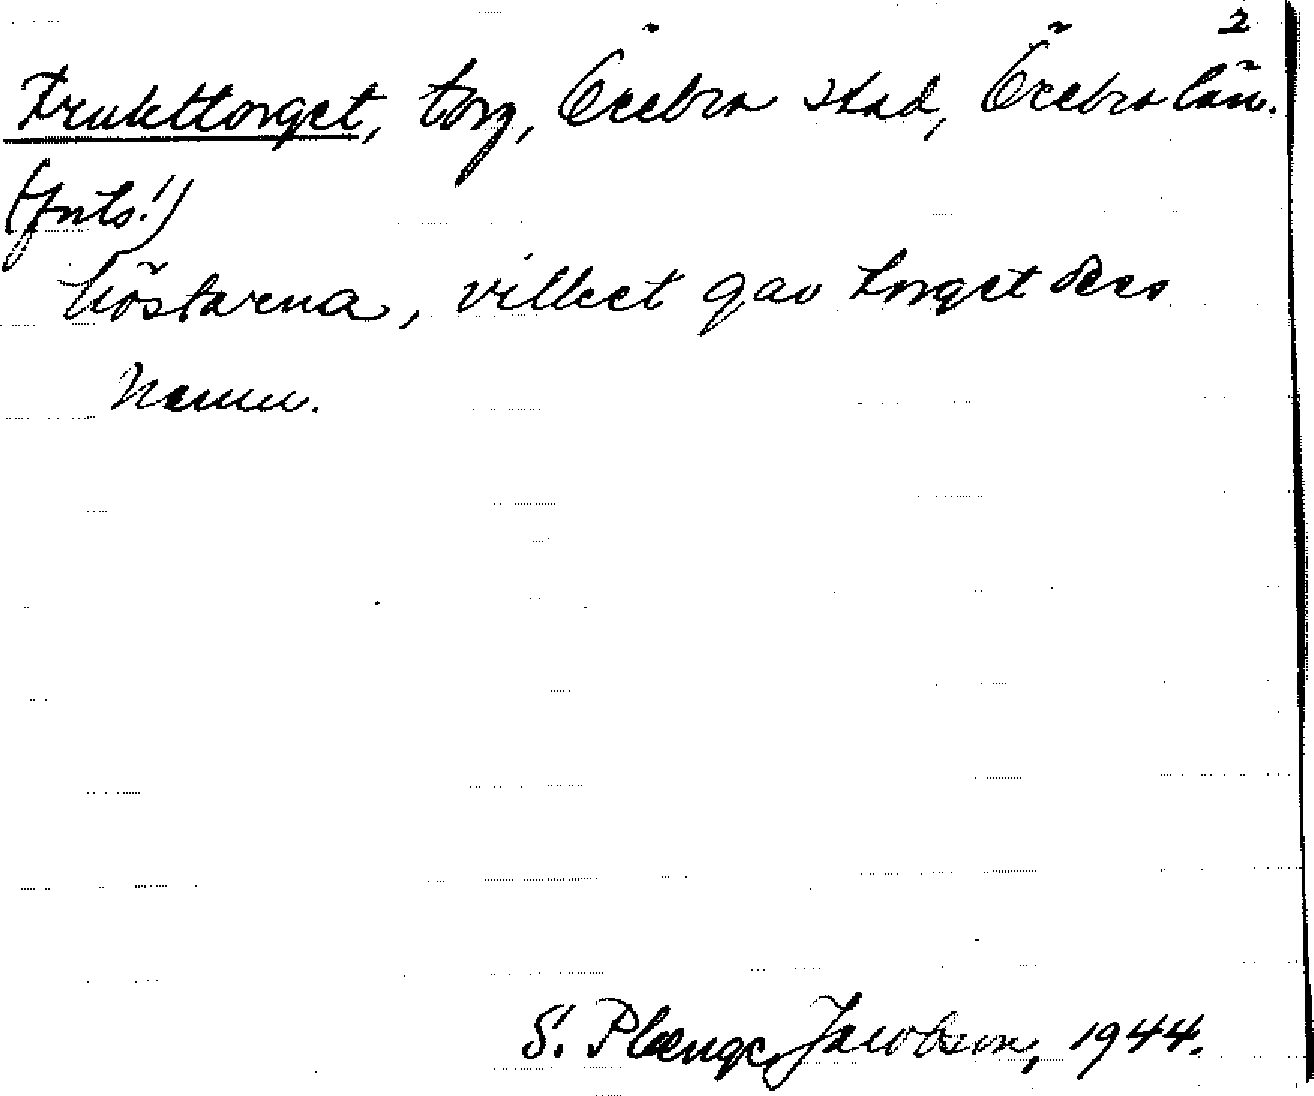 2
Frukttorget, torg, Örebro stad, Örebro län.
(forts.)
höstarna, vilket gav torget dess
namn.
S. Plænge Jacobson, 1944.